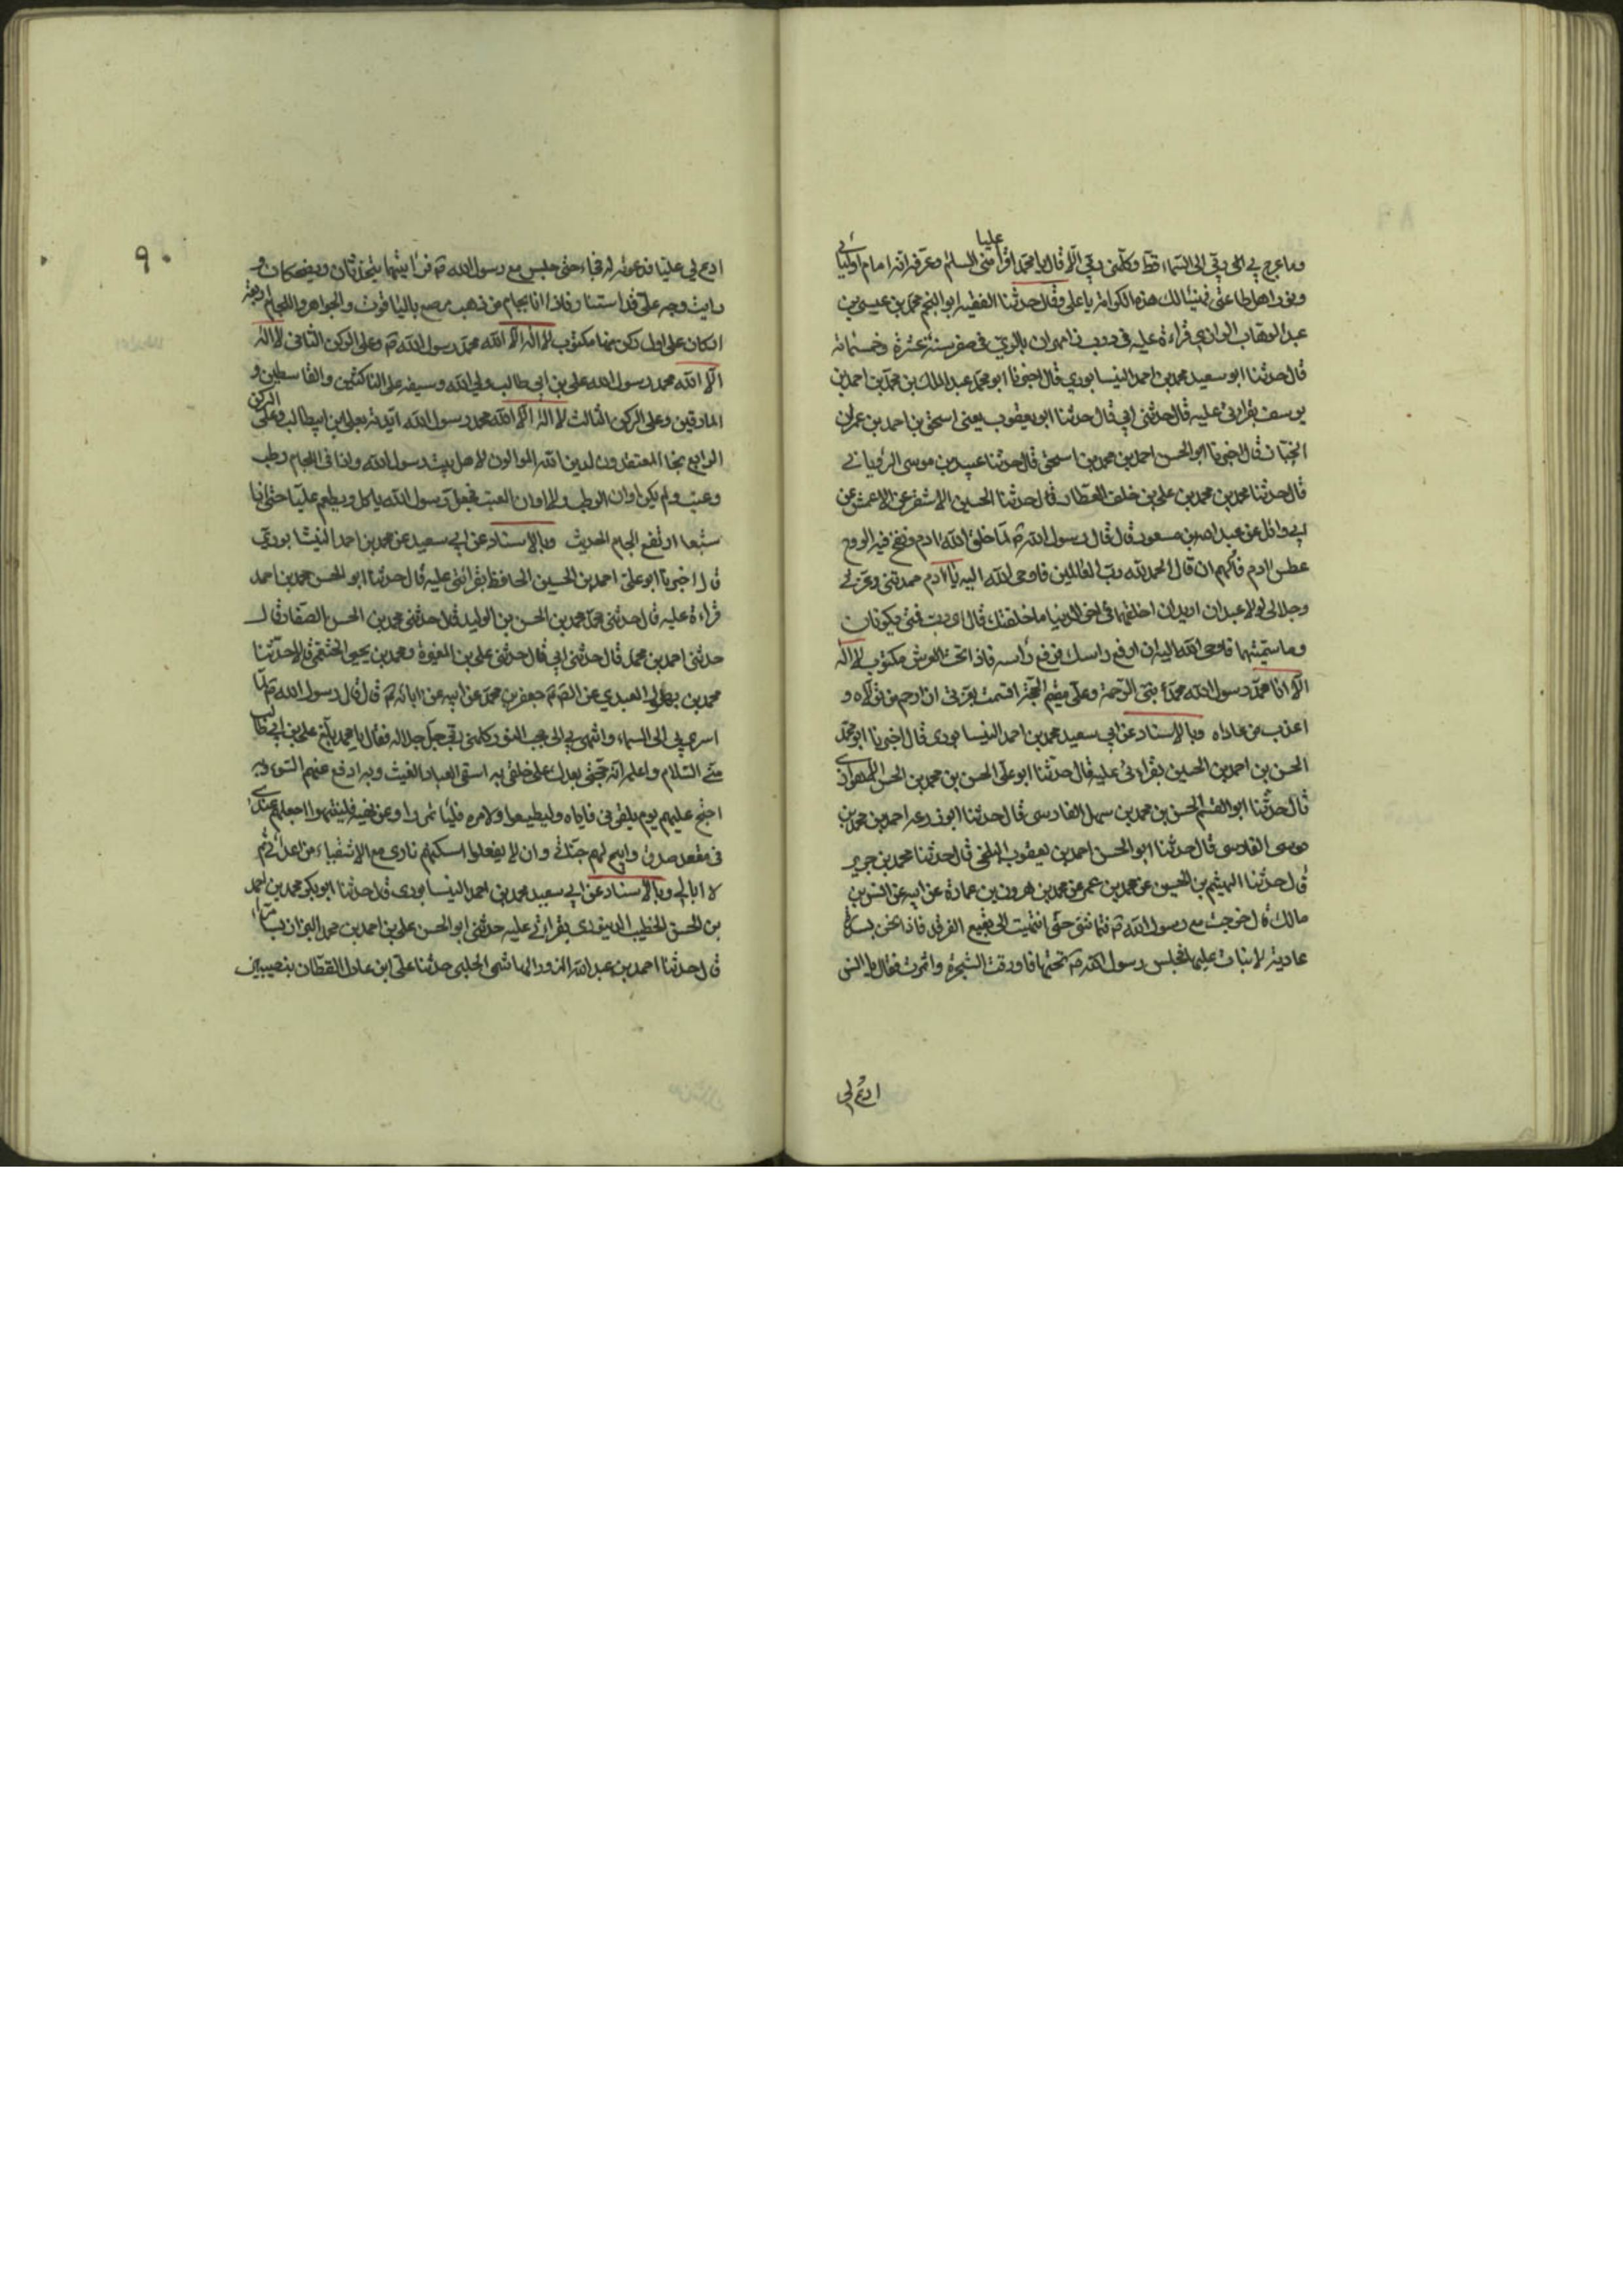 عليا
وما عرج بي الى ربي الى السماء قط وكلمني ربي الا قال يا محمد اقرأ مني السلم وعرفه انه امام اوليائي
ونور اهل طاعتي فهنيئا لك هذه الكرامة يا علي وقال حدثنا الفقيه ابو النجم محمد بن عيسى بن
عبد الوهاب الرازي قراءة عليه في درب زامهران بالري في صفر سنة عشرة وخمسمائة
قال حدثنا ابو سعيد محمد بن احمد النيسابوري قال اخبرنا ابو محمد عبد الملك بن محمد بن احمد بن
يوسف بقراءتي عليه قال حدثني ابي قال حدثنا ابو يعقوب يعني اسحق بن احمد بن عمران
الخباز قال اخبرنا ابو الحسن احمد بن محمد بن اسحق قال حدثنا عبيد بن موسى الروياني
قال حدثنا محمد بن محمد بن علي بن خلف العطار قال حدثنا الحسين الاشقر عن الاعمش عن
ابي وائل عن عبد الله بن مسعود قال قال رسول الله ص لما خلق الله ادم ونفخ فيه الروح
عطس ادم فالهم ان قال الحمد لله رب العالمين فاوحى الله اليه يا ادم حمدتني وعزتي
وجلالي لولا عبدان اريد ان اخلقهما في اخر الدنيا ما خلقتك قال اي رب فمتى يكونان
وما سميتهما فاوحى الله اليه ان ارفع راسك فرفع راسه فاذا تحت العرش مكتوب لا اله
الا انا محمد رسول الله محمد نبي الرحمة وعلي مقيم الحجة اقسمت بعزتي ان ارحم من تولاه و
اعذب من عاداه وبالاسناد عن ابي سعيد محمد بن احمد النيسابوري قال اخبرنا ابو محمد
الحسن بن احمد بن الحسين بقراءتي عليه قال حدثنا ابو علي الحسن بن محمد بن الحسن
قال حدثنا ابو القسم الحسن بن محمد بن سهل الفارسي قال حدثنا ابو زرعه احمد بن محمد بن
موسى الفارسي قال حدثنا ابو الحسن احمد بن يعقوب البلخي قال حدثنا محمد بن جرير
قال حدثنا الهيثم بن الحسين عن محمد بن عمر عن محمد بن هرون بن عمارة عن ابيه عن انس بن
مالك قال خرجت مع رسول الله ص نتماشى حتى انتهيت الى بقيع الغرقد فاذا نحن بسدرة
عارية لا نبات عليها فجلس رسول الله ص تحتها فاورقت الشجرة واثمرت فقال يا انس
ادع لي
٩٠
ادع لي عليا فدعوته له فجاء حتى جلس مع رسول الله ص فرايتهما يتحدثان ويضحكان و
رايت وجه علي قد استنار فاذا انا بجام من ذهب مرصع بالياقوت والجواهر وللجام اربعة
اركان على اول ركن منها مكتوب لا اله الا الله محمد رسول الله ص وعلى الركن الثاني لا اله
الا الله محمد رسول الله علي بن ابي طالب ولي الله وسيفه على الناكثين والقاسطين و
المارقين وعلى الركن الثالث لا اله الا الله محمد رسول الله ايدته بعلي بن ابيطالب وعلى الركن
الرابع نجا المعتقدون لدين الله الموالون لاهل بيت رسول الله واذا في الجام رطب
وعنب ولم يكن اوان الرطب ولا اوان العنب فجعل رسول الله ياكل ويطعم عليا حتى اذا
شبعا ارتفع الجام الحديث وبالاسناد عن ابي سعيد محمد بن احمد النيشابوري
قال اخبرنا ابو علي احمد بن الحسين الحافظ بقرائتي عليه قال حدثنا ابو الحسن محمد بن احمد
قراءة عليه قال حدثني محمد بن الحسن بن الوليد قال حدثني محمد بن الحسن الصفار قال
حدثني احمد بن محمد قال حدثني ابي قال حدثني علي بن المغيرة ومحمد بن يحيى الخثعمي قالا حدثنا
محمد بن بهلول العبدي عن الصم جعفر بن محمد عن ابيه عن ابائه ص قال قال رسول الله ص لما
اسري بي الى السماء وانتهى بي الى حجب النور كلمني ربي جل جلاله فقال يا محمد بلغ علي بن ابي طالب
مني السلام واعلمه انه حجتي بعدك على خلقي به اسقي العباد الغيث وبه ادفع عنهم السوء وبه
احتج عليهم يوم يلقوني فاياه وليطيعوا ولامره فلياتمروا وعن نهيه فلينتهوا اجعلهم عندي
في مقعد صدق وابيح لهم جناني وان لا يفعلوا اسكنهم ناري مع الاشقياء من اعدائي ثم
لا ابالي وبالاسناد عن ابي سعيد محمد بن احمد النيسابوري قال حدثنا ابو بكر محمد بن احمد
بن الحسن الخطيب الدينوري بقرائتي عليه حدثني ابو الحسن علي بن احمد بن محمد البزاز
قال حدثنا احمد بن عبد الله الهاشمي الحلبي حدثنا علي ابن عادل القطان بنصيبين